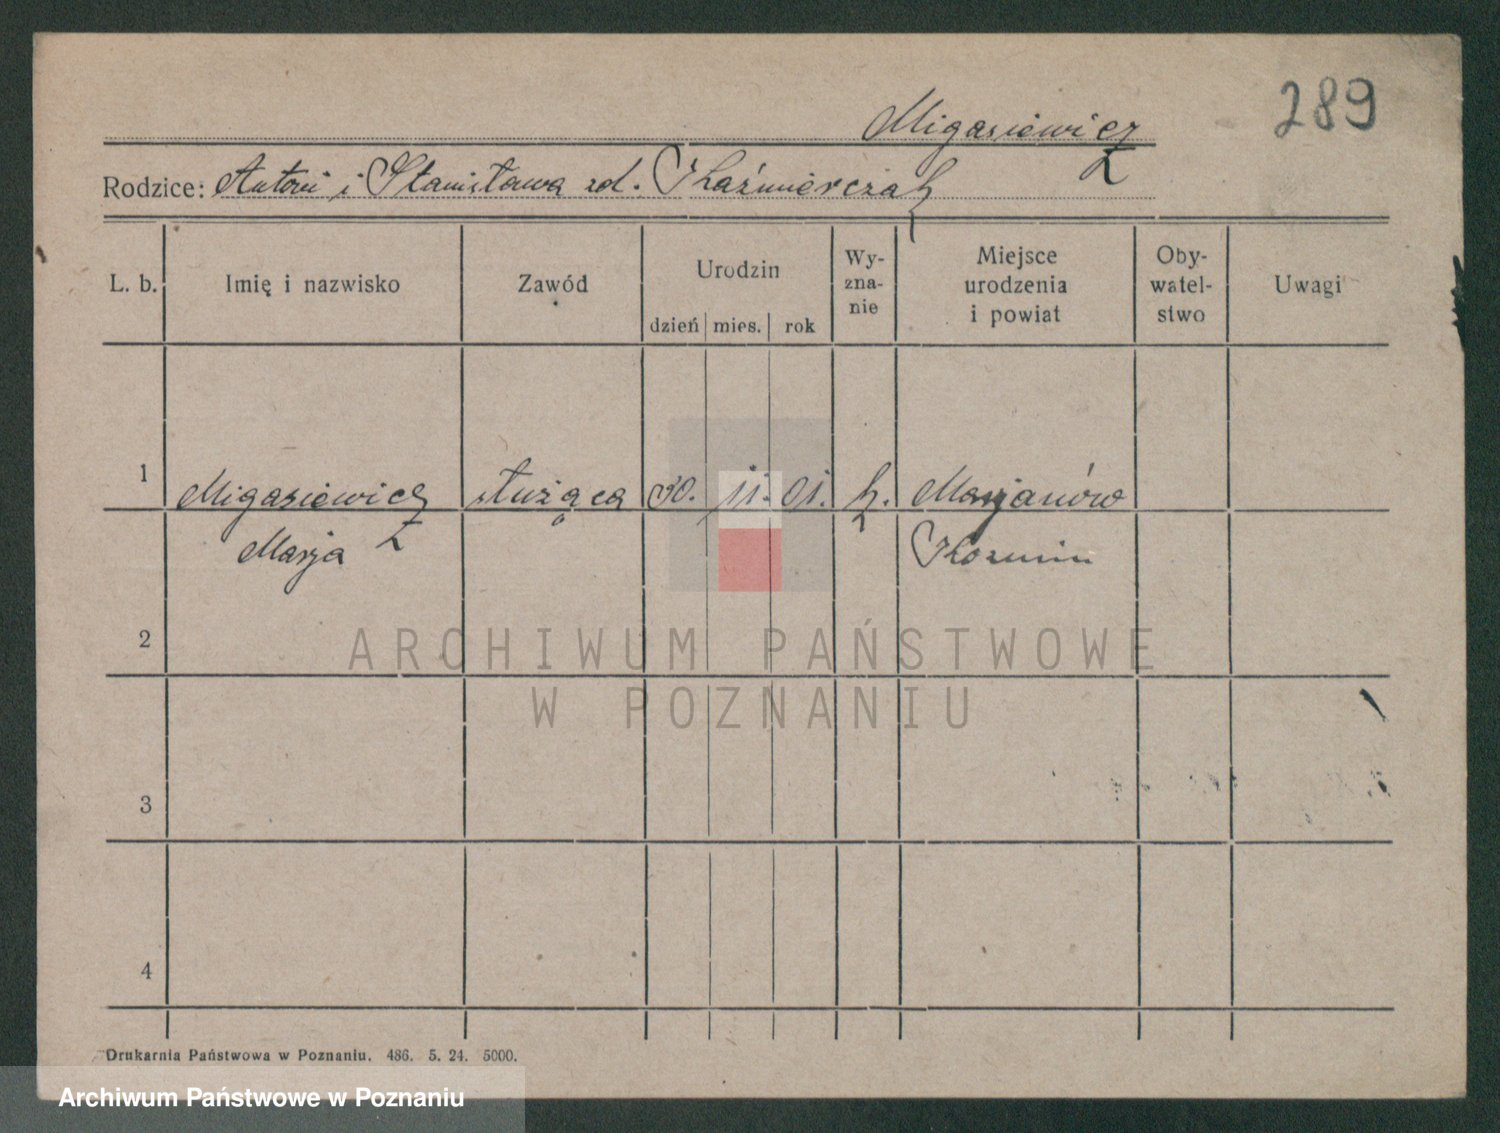 289
Migasiewicz
Rodzice: Antoni i Stanisława zd. Kaźmierczak
L. b. Imię i nazwisko Zawód Urodzin dzień mies. rok Wy-zna-nie Miejsce urodzenia i powiat Oby-watel-stwo Uwagi
1 Migasiewicz służąca 30. 11. 01. k. Marjanów
Marja Koźmin
2
ARCHIWUM PAŃSTWOWE
W POZNANIU
3
4
Drukarnia Państwowa w Poznaniu. 486. 5. 24. 5000.
Archiwum Państwowe w Poznaniu